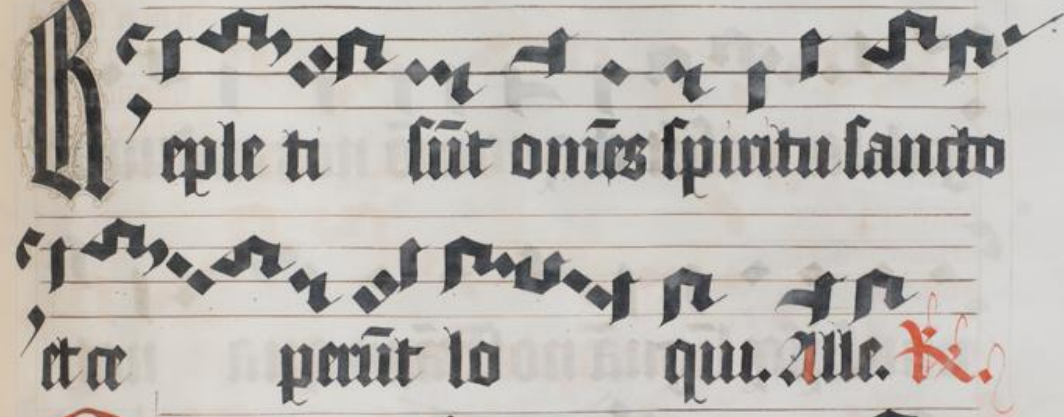 Reple ti sūt om̄es spiritu sancto
et ce perūt lo qui. Alle. ℟.